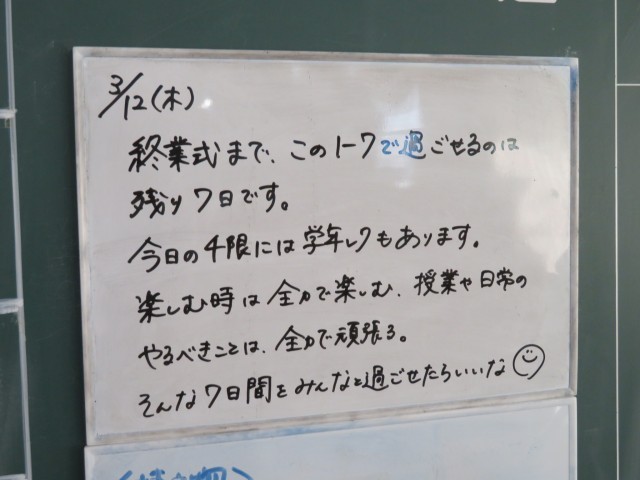 3/12(木)
終業式まで、この1-7で過ごせるのは
残り7日です。
今日の4限には学年レクもあります。
楽しむ時は全力で楽しむ、授業や日常の
やるべきことは、全力で頑張る。
そんな7日間をみんなと過ごせたらいいな